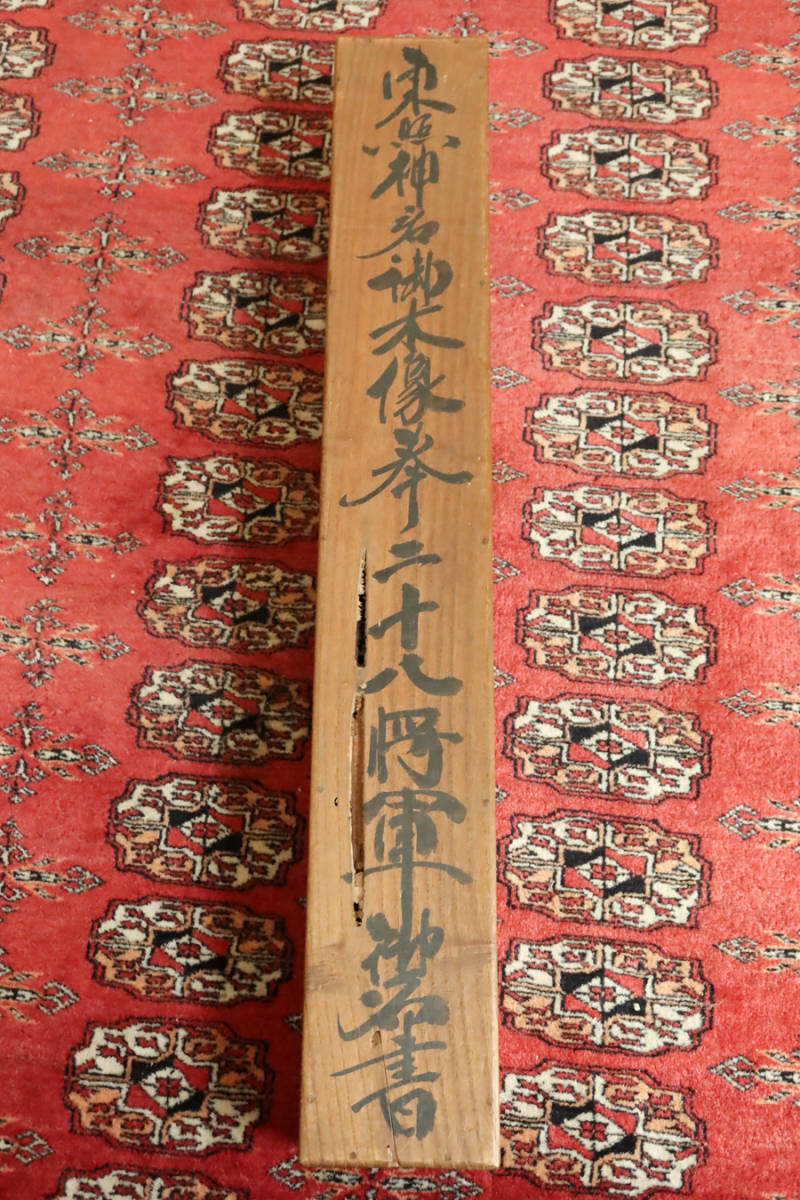 東照神君御木像奉二十八将軍御名書